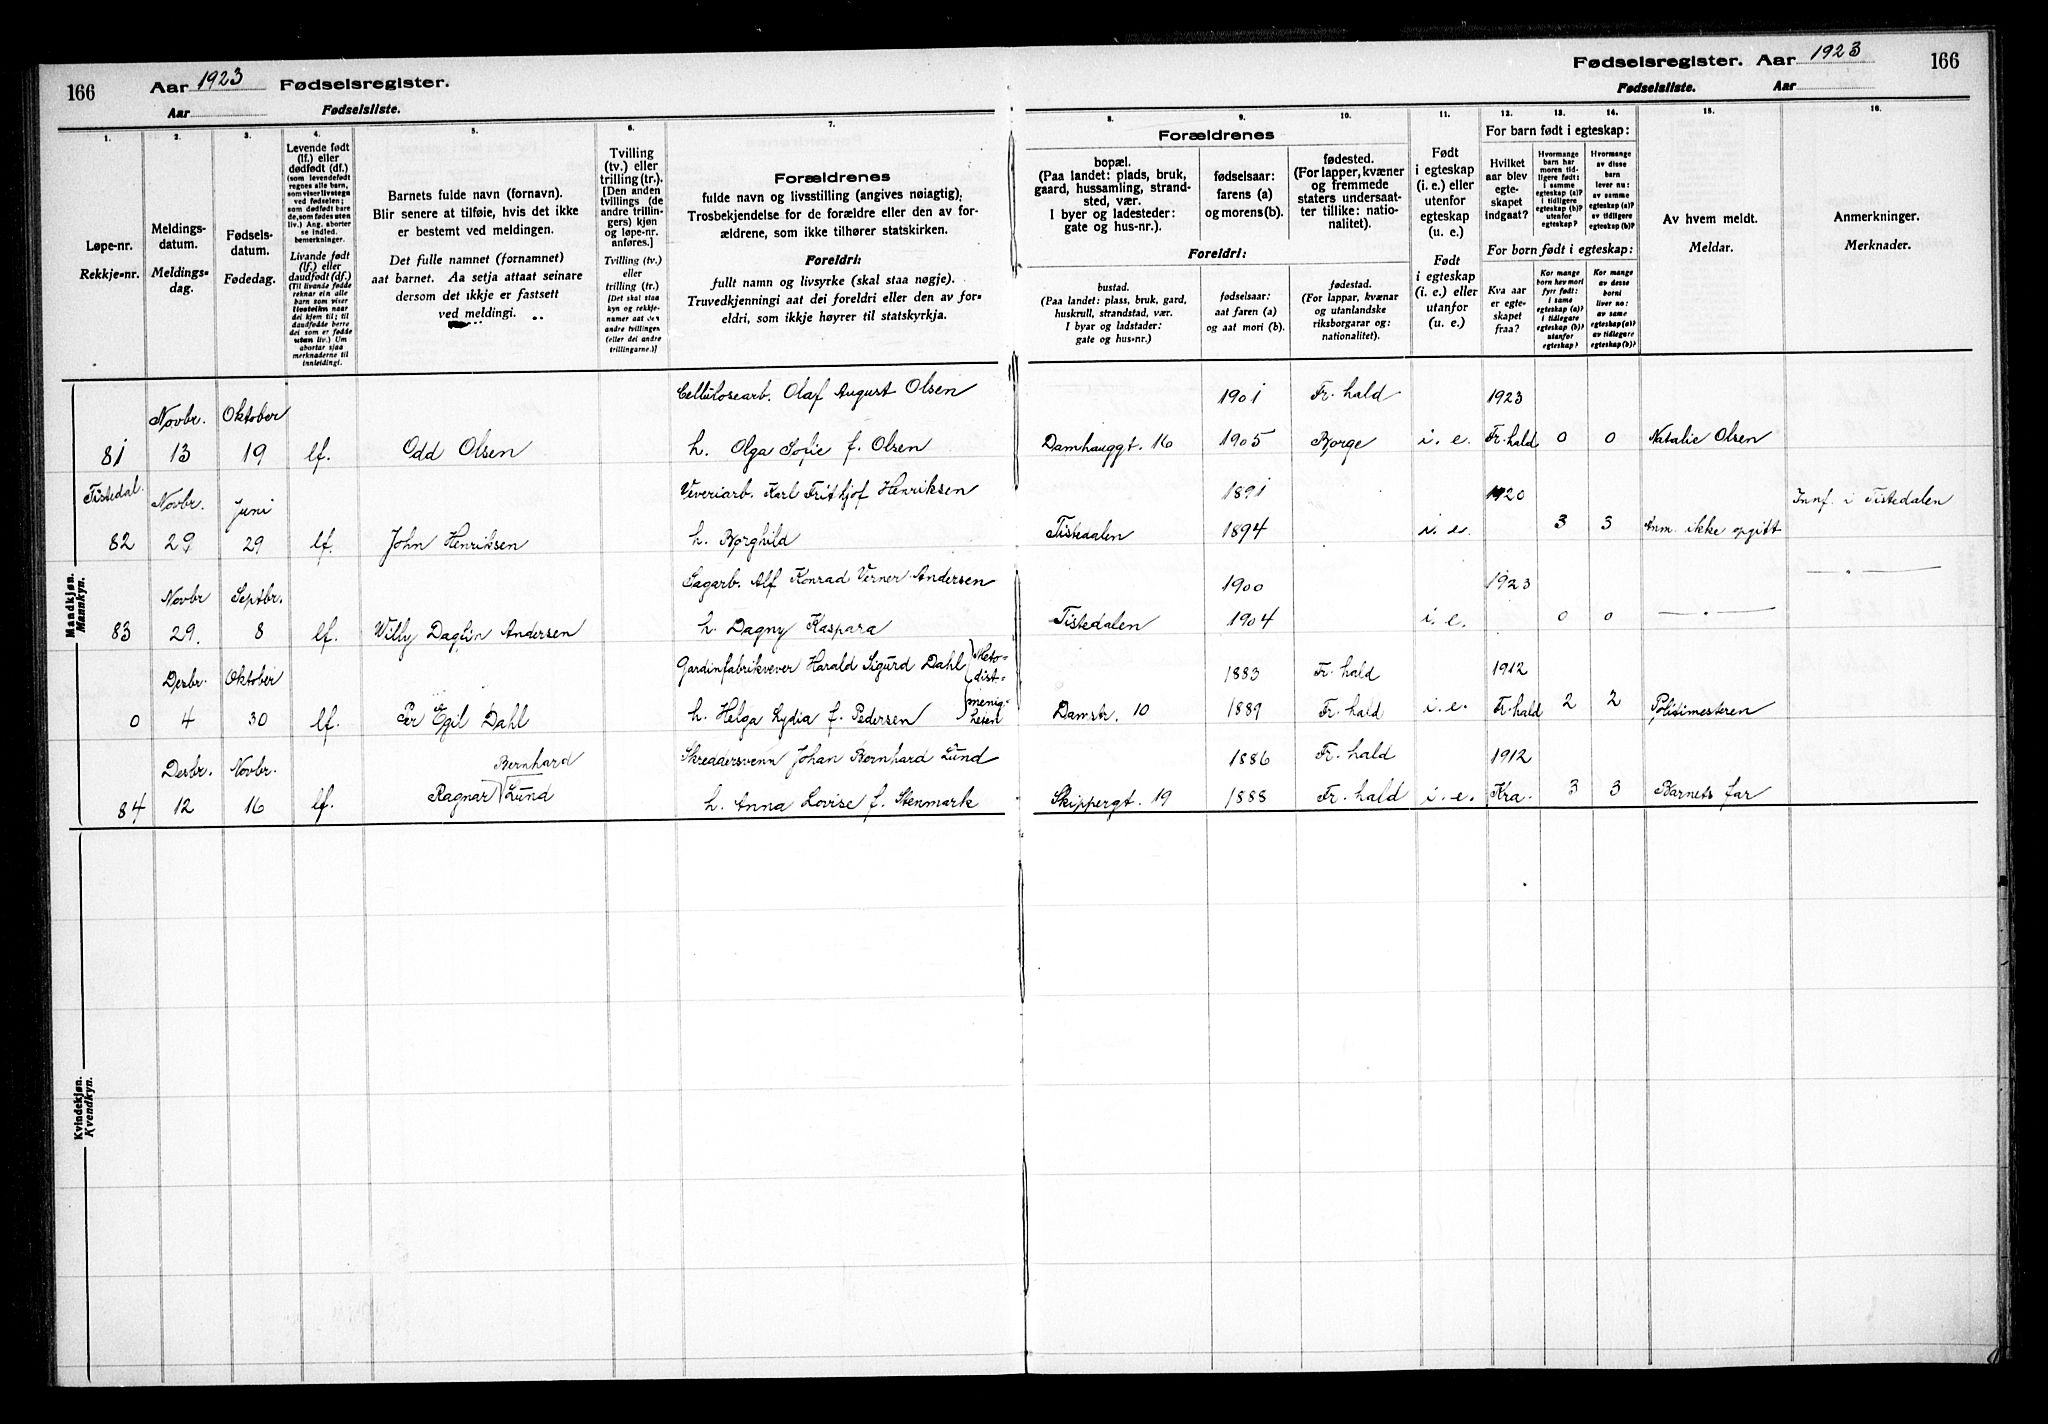 166 Aar 1923 Fødselsregister.
Aar Fødselsliste.
Fødselsregister. Aar 1923 166
Fødselsliste. Aar
1. 2. 3. 4. 5. 6. 7.
Løpe-nr.
Rekkje-nr.
Meldings-
datum.
Meldings-
dag.
Fødsels-
datum.
Fødedag.
Levende født
(lf.) eller
dødfødt (df.)
(som levendefødt
regnes alle barn,
som viser livstegn
ved fødselen;
som dødfødt bare
de, som fødes uten
liv.) Ang. aborter
se indled.
bemerkninger.
Livande født
(lf.) eller
daudfødt (df.)
(Til livande fødde
reknar ein alle
barn som viser
livsteikn naar
dei kjem til; til
daudfødde berre
dei som er fødde
utan liv.) Um
abortar sjaa
merknaderne til
innleiding!
Barnets fulde navn (fornavn).
Blir senere at tilføie, hvis det ikke
er bestemt ved meldingen.
Det fulle namnet (fornamnet)
aat barnet. Aa setja attaat seinare
dersom det ikkje er fastsett
ved meldingi.
Tvilling
(tv.) eller
trilling (tr.).
[Den anden
tvillings (de
andre trillin-
gers) kjøn
og løpe-nr.
anføres.]
Tvilling (tv.)
eller
trilling (tr.)
[Det skal staa
kyn og rekkje-
numer aat den
andre tvillingen
(eller dei andre
trillingarne.)]
Forældrenes
fulde navn og livsstilling (angives nøiagtig).
Trosbekjendelse for de forældre eller den av for-
ældrene, som ikke tilhører statskirken.
Foreldri:
fullt namn og livsyrke (skal staa nøgje).
Truvedkjenningi aat dei foreldri eller den av for-
eldri, som ikkje høyrer til statskyrkja.
8. 9. 10. 11. 12. 13. 14. 15. 16.
Forældrenes
bopæl.
(Paa landet: plads, bruk,
gaard, hussamling, strand-
sted, vær.
I byer og ladesteder:
gate og hus-nr.).
fødselsaar:
farens (a)
og morens (b).
fødested.
(For lapper, kvæner
og fremmede
staters undersaat-
ter tillike: natio-
nalitet).
Foreldri:
bustad.
(Paa landet: plass, bruk, gard,
huskrull, strandstad, vær.
I byar og ladstader:
gate og hus-nr.)
fødselsaar:
aat faren (a)
og aat mori (b).
fødestad.
(For lappar, kvænar
og utanlandske
riksborgarar og:
nationalitet).
Født
i egteskap
(i. e.) eller
utenfor
egteskap
(u. e.)
Født
i egteskap
(i. e.) eller
utanfor
(u. e.)
For barn født i egteskap:
Hvilket
aar blev
egte-
skapet
indgaat?
Hvormange
barn har
moren tid-
ligere født:
i samme
egteskap (a)?
i tidligere
egteskap (b)?
utenfor
egteskap?
Hvormange
av disse
barn
lever nu:
av samme
egteskap (a)?
av tidligere
egteskap (b)?
For born født i egteskap:
Kva aar
er egte-
skapet
fraa?
Kor mange
born hev mori
fyrr født:
i same
egteskap (a)?
i tidlegare
egteskap (b)?
utanfor
egteskap?
Kor mange
av desse
borni
liver no:
av same
egteskap (a)?
av tidlegare
egteskap (b)?
Av hvem meldt.
Meldar.
Anmerkninger.
Merknader.
Mandkjøn.
Mannkyn.
Cellulosearb. Olaf August Olsen 1901 Fr. hald 1923
Novbr. Oktober
81 13 19 lf. Odd Olsen h. Olga Sofie f. Olsen Damhauggt. 16 1905 Borge i. e. Fr. hald 0 0 Natalie Olsen
Tistedal. Novbr. Juni Veveriarb. Karl Frithjof Henriksen 1891 1920 Innf. i Tistedalen
82 29 29 lf. John Henriksen h. Borghild Tistedalen 1894 i. e. 3 3 Anm. ikke opgitt
Novbr Septbr. Sagarb. Alf Konrad Verner Andersen 1900 1923 — " —
83 29. 8 lf. Willy Daglin Andersen h. Dagny Kaspara Tistedalen 1904 i. e. 0 0 — " —
Desbr. Oktober Gardinfabrikvever Harald Sigurd Dahl Meto- 1883 Fr. hald 1912
dist-
0 4 30 lf. Per Egil Dahl h. Helga Lydia f. Pedersen menig- Damstr. 10 1889 Fr. hald i. e. Fr. hald 2 2 Politimesteren
heten
Desbr. Novbr. Bernhard Skreddersvenn Johan Bernhard Lund 1886 Fr. hald 1912
84 12 16 lf. Ragnar Lund h. Anna Lovise f. Stenmark Skippergt. 19 1888 Fr. hald i. e. Kra. 3 3 Barnets far
Kvindekjøn.
Kvendkyn.